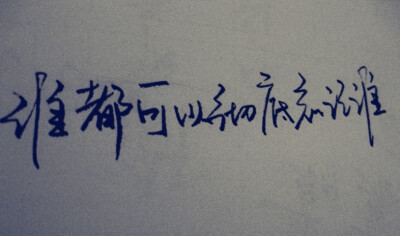 谁都可以彻底忘记谁